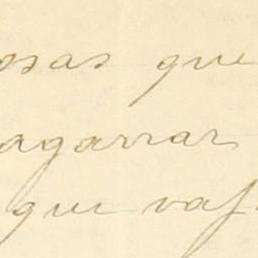 osas que
agarrar
que vaf